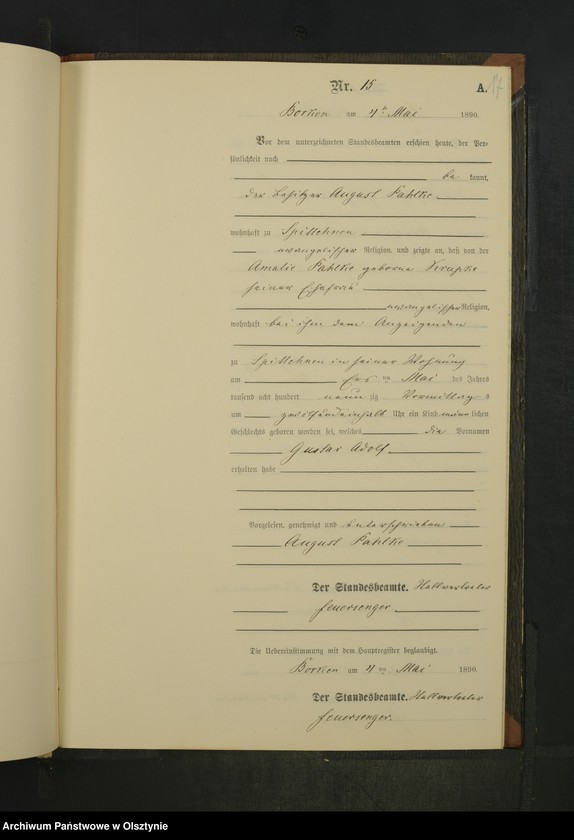 Nr. 15
A. 17
Borken am 4ten Mai 1890.
Vor dem unterzeichneten Standesbeamten erschien heute, der Per=
sönlichkeit nach
be kannt,
der Besitzer August Kahlke
wohnhaft zu Spittehnen
evangelischer Religion, und zeigte an, daß von der
Amalie Kahlke geborne Krupke
seiner Ehefrau
evangelischer Religion,
wohnhaft bei ihm dem Anzeigenden
zu Spittehnen in seiner Wohnung
am ten Mai des Jahres
tausend acht hundert neun zig Vormittag s
um Uhr ein Kind männ lichen
Geschlechts geboren worden sei, welches die Vornamen
Gustav Adolf
erhalten habe
Vorgelesen, genehmigt und unterschrieben
August Kahlke
Der Standesbeamte.
Die Uebereinstimmung mit dem Hauptregister beglaubigt.
Borken am 4ten Mai 1890.
Der Standesbeamte.
Archiwum Państwowe w Olsztynie